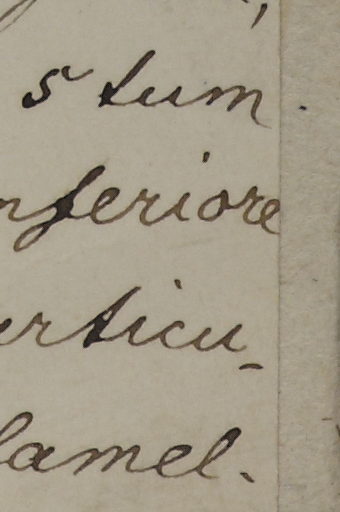 5 tum
nferiore
articu-
lamel-